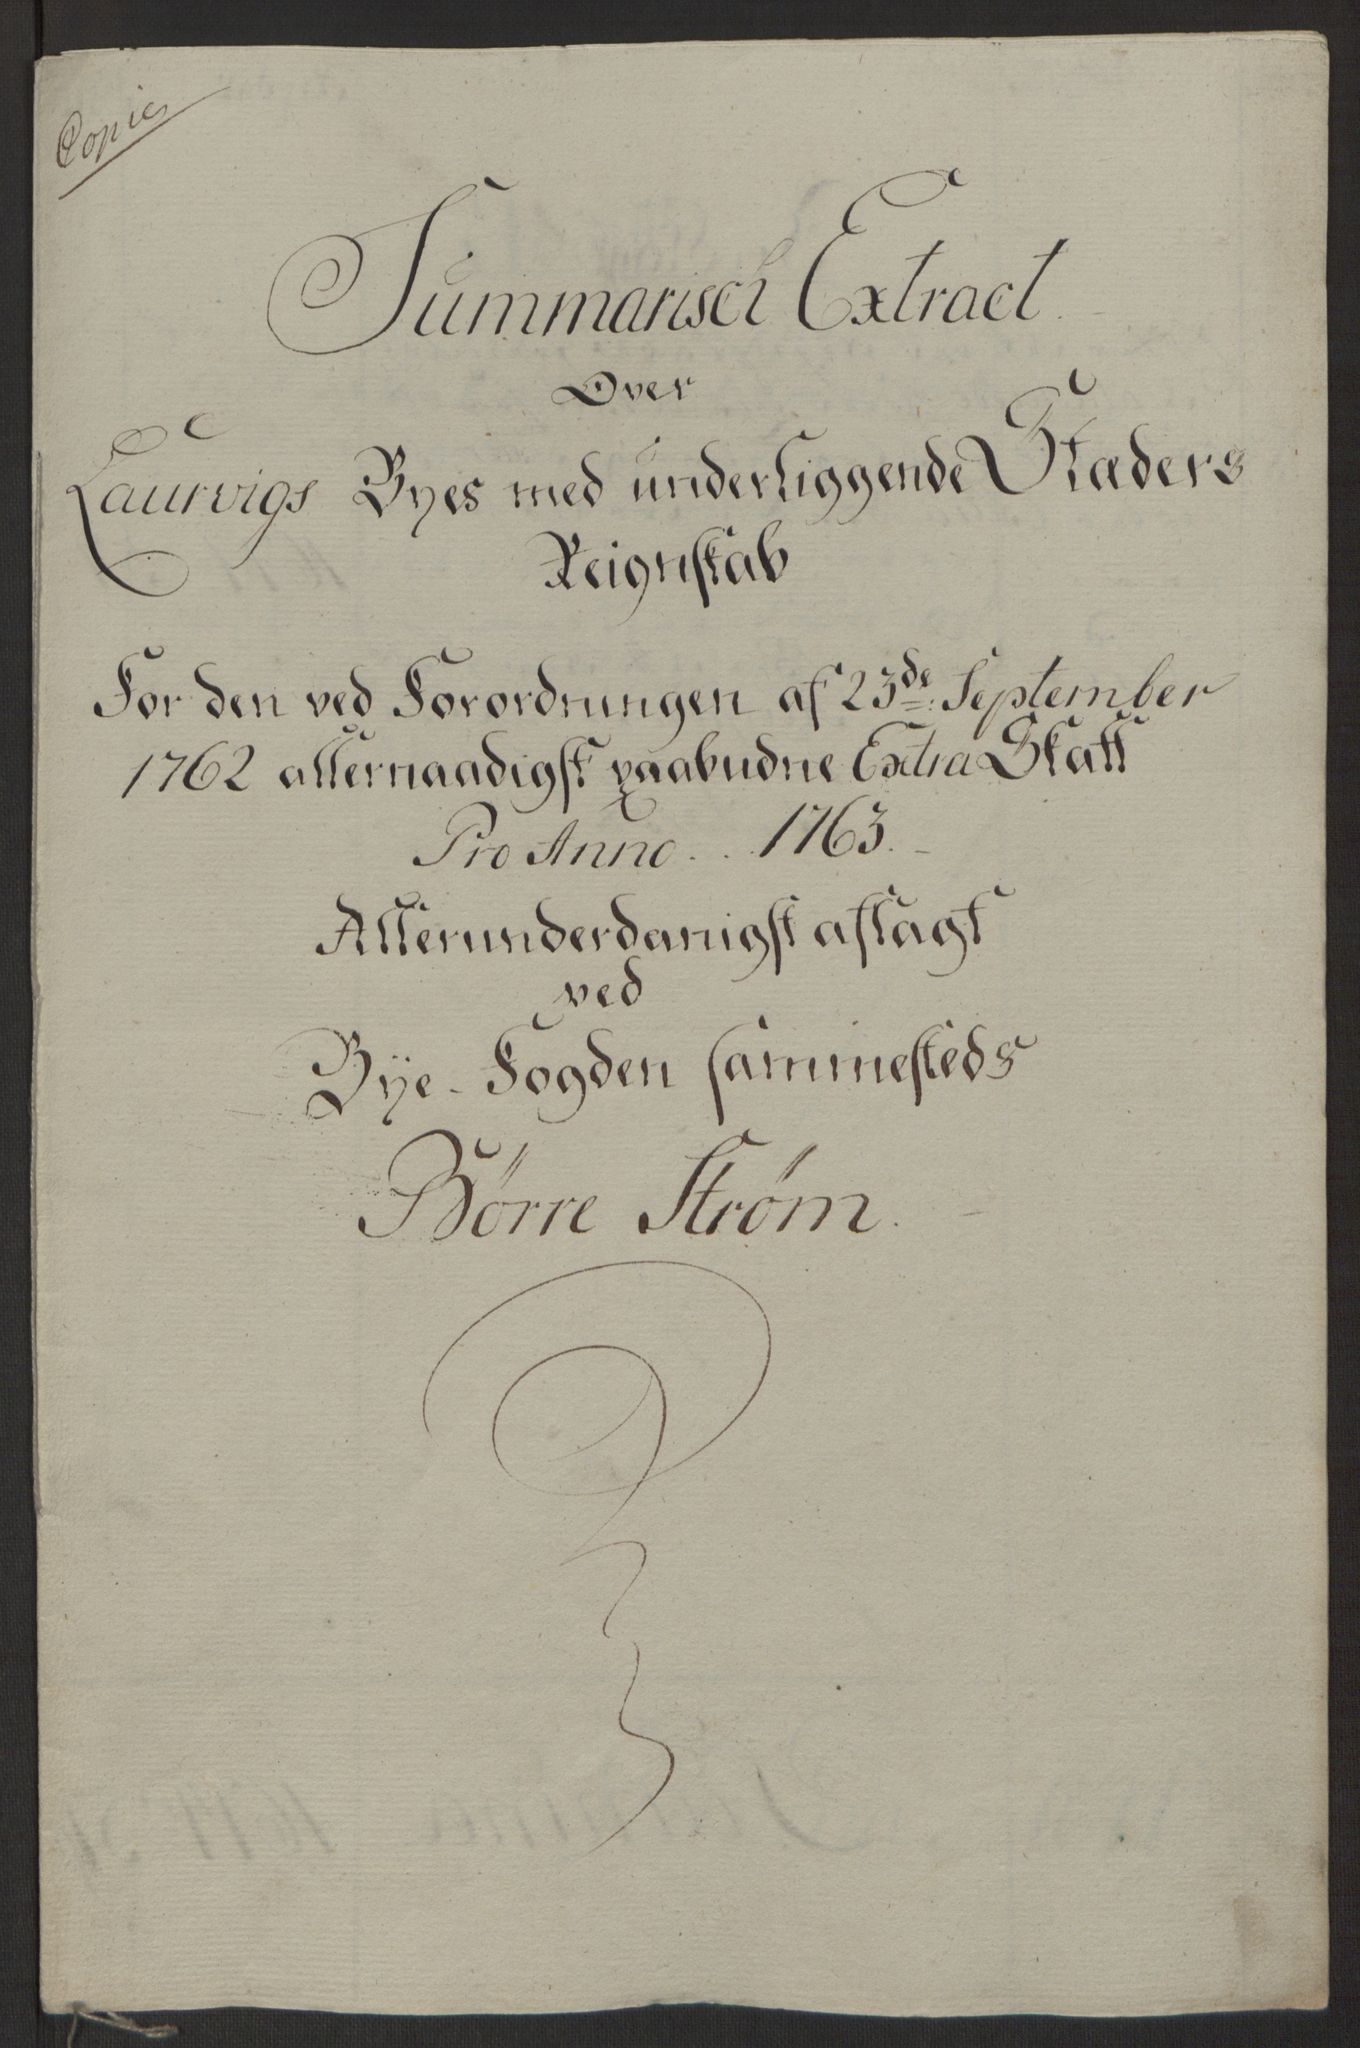 Copie
Summarisch Extract
Over
Laurvigs Byes med underliggende Stæders
Reignskab
For den ved Forordningen af 23de September
1762 allernaadigst paabudne Extra Skatt
Pro Anno .. 1763.
Allerunderdanigst aflagt
ved
Bÿe-Fogden sammesteds
Børre Strøm.